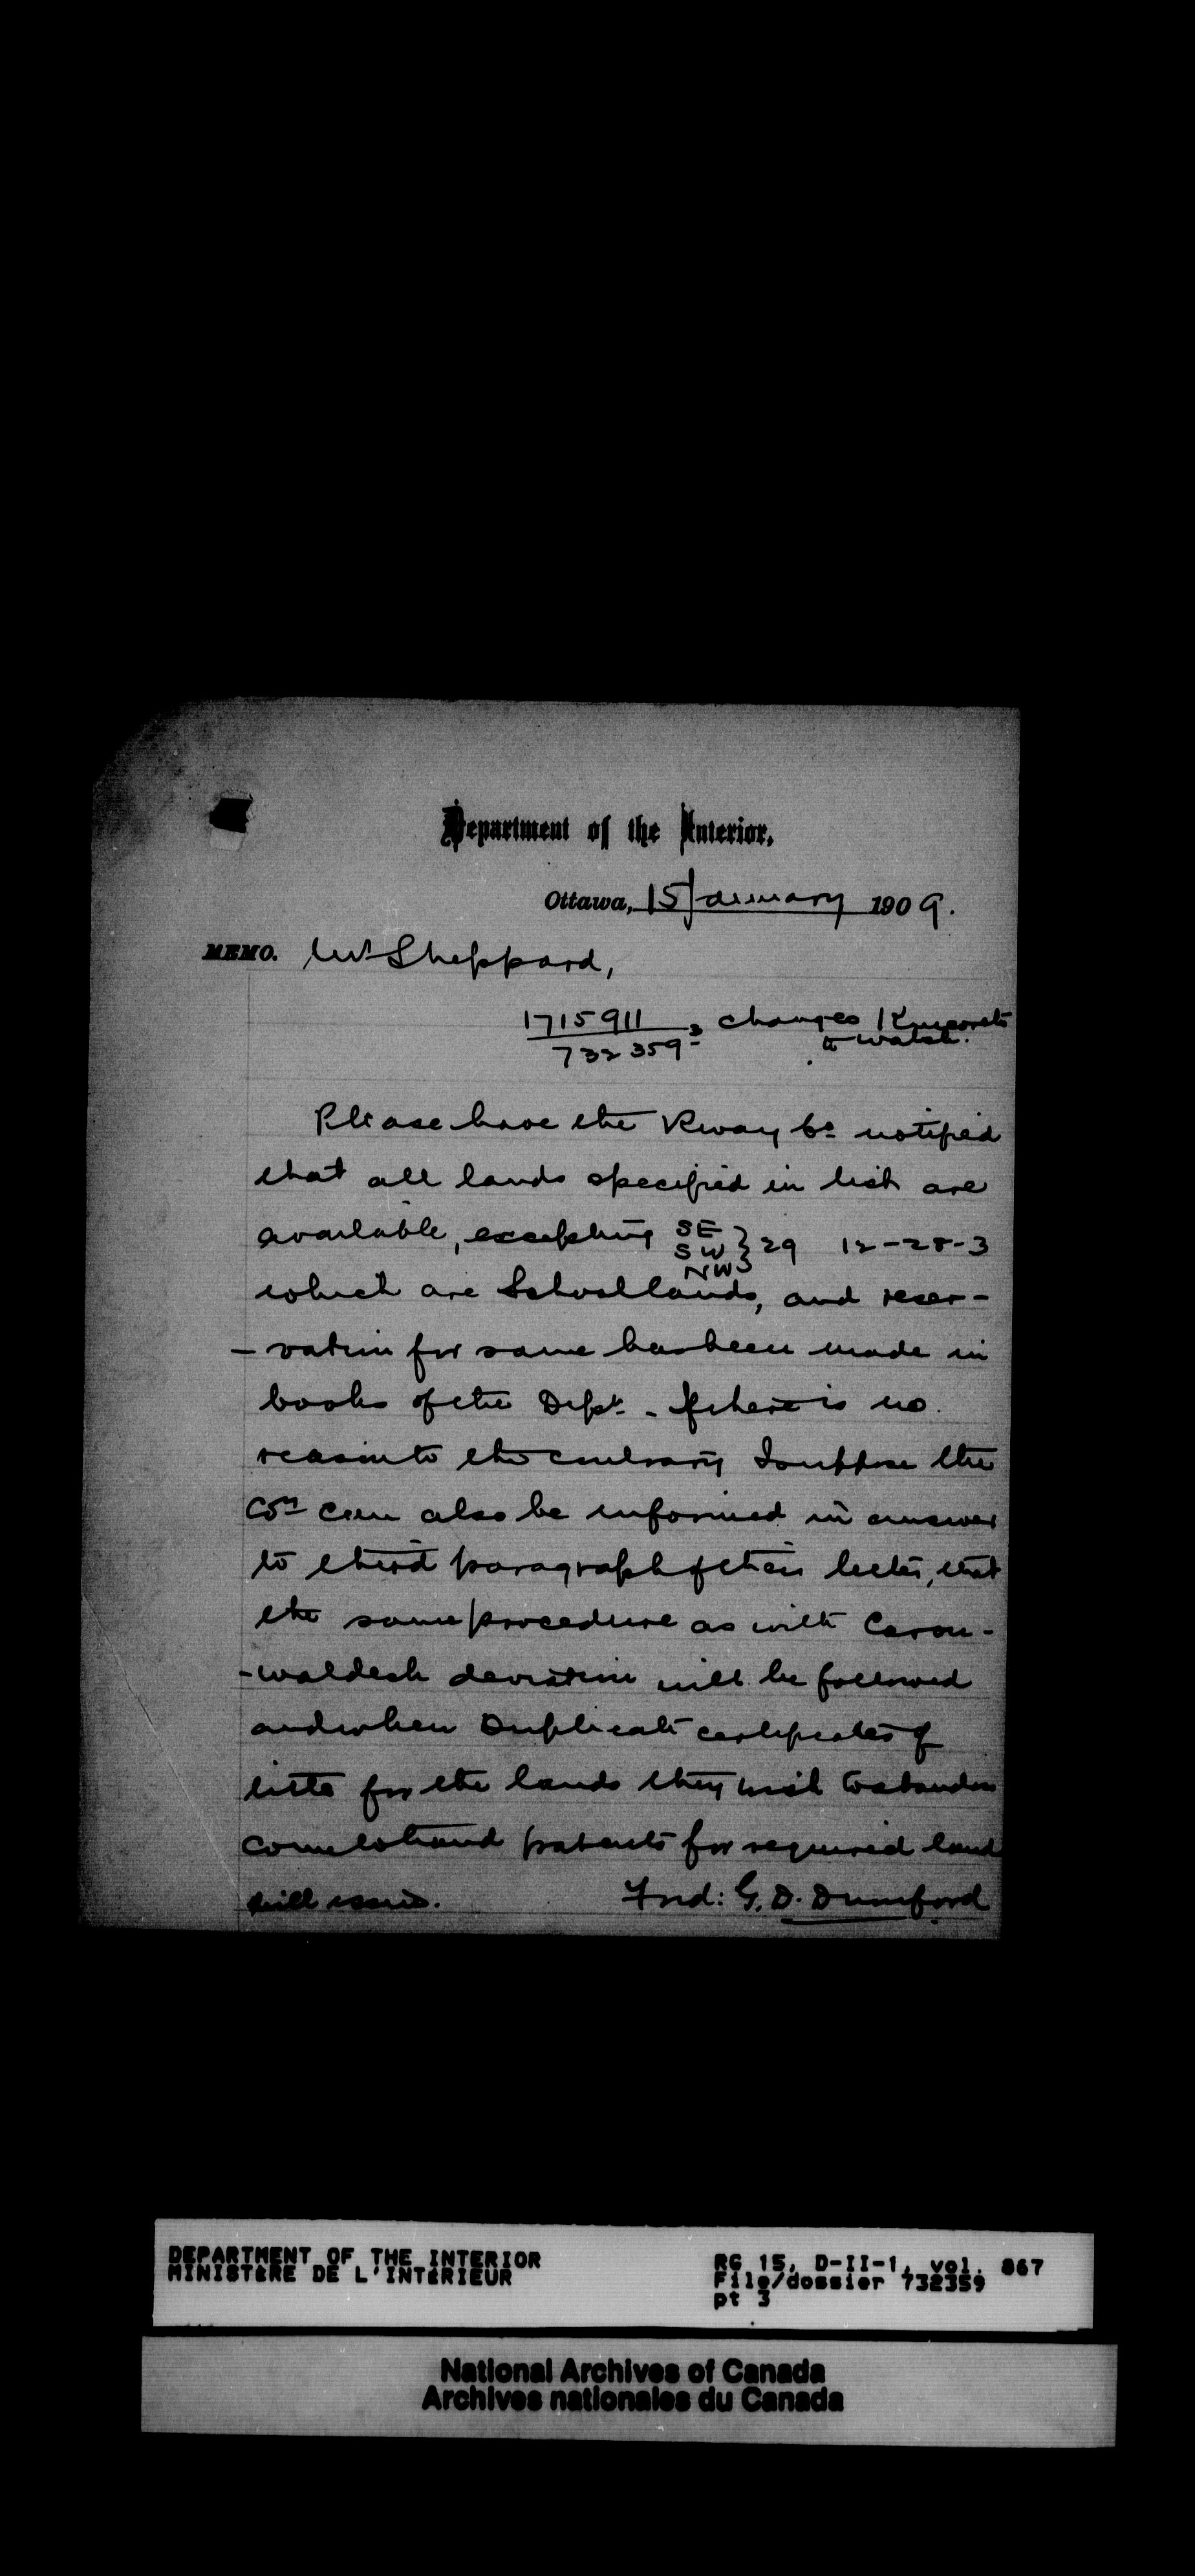 Department of the Interior,
Ottawa, 15 January 1909.
MEMO. Mr Sheppard,
1715911 changes Kincorth
732359 - 3 to Walsh.
Please have the Rway Co notified
that all lands specified in list are
available, excepting SE
SW } 29 12-28-3
NW
which are School lands, and reser-
- vation for same has been made in
books of the Dept. - If there is no
reason to the contrary I suppose the
Coy can also be informed in answer
to third paragraph of their letter, that
the same procedure as with Caron-
-Waldeck deviation will be followed
and when Duplicate certificates of
title for the lands they wish to abandon
come to hand patents for required land
will issue. G. D. Dumford
DEPARTMENT OF THE INTERIOR
MINISTÈRE DE L'INTÉRIEUR
RG 15, D-II-1, vol. 867
File/dossier 732359
pt 3
National Archives of Canada
Archives nationales du Canada